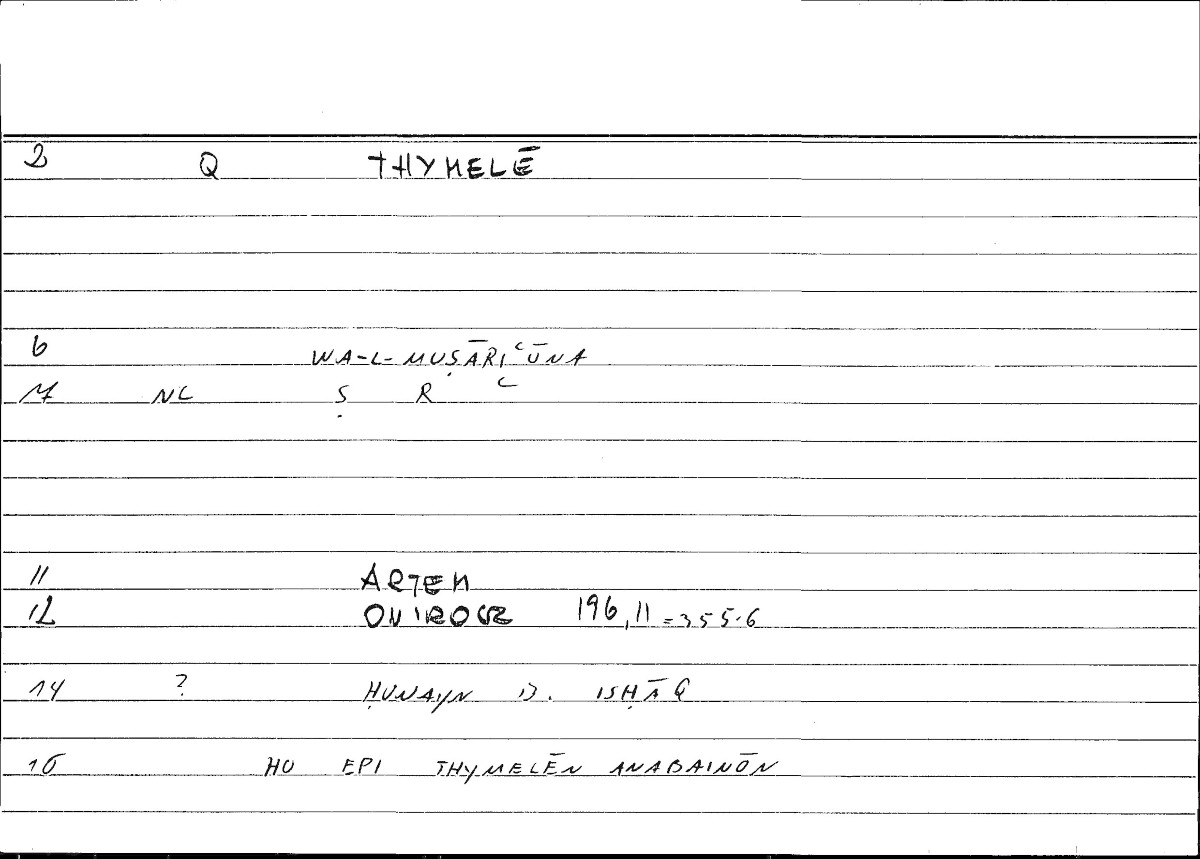 2 Q THYMELĒ
6 WA-L-MUṢĀRIʿŪNA
17 NC Ṣ R ʿ
11 ARTEM
12 ONIROCR 196,11 = 355.6
14 ? ḤUNAYN B. ISḤĀQ
16 HO EPI THYMELĒN ANABAINŌN